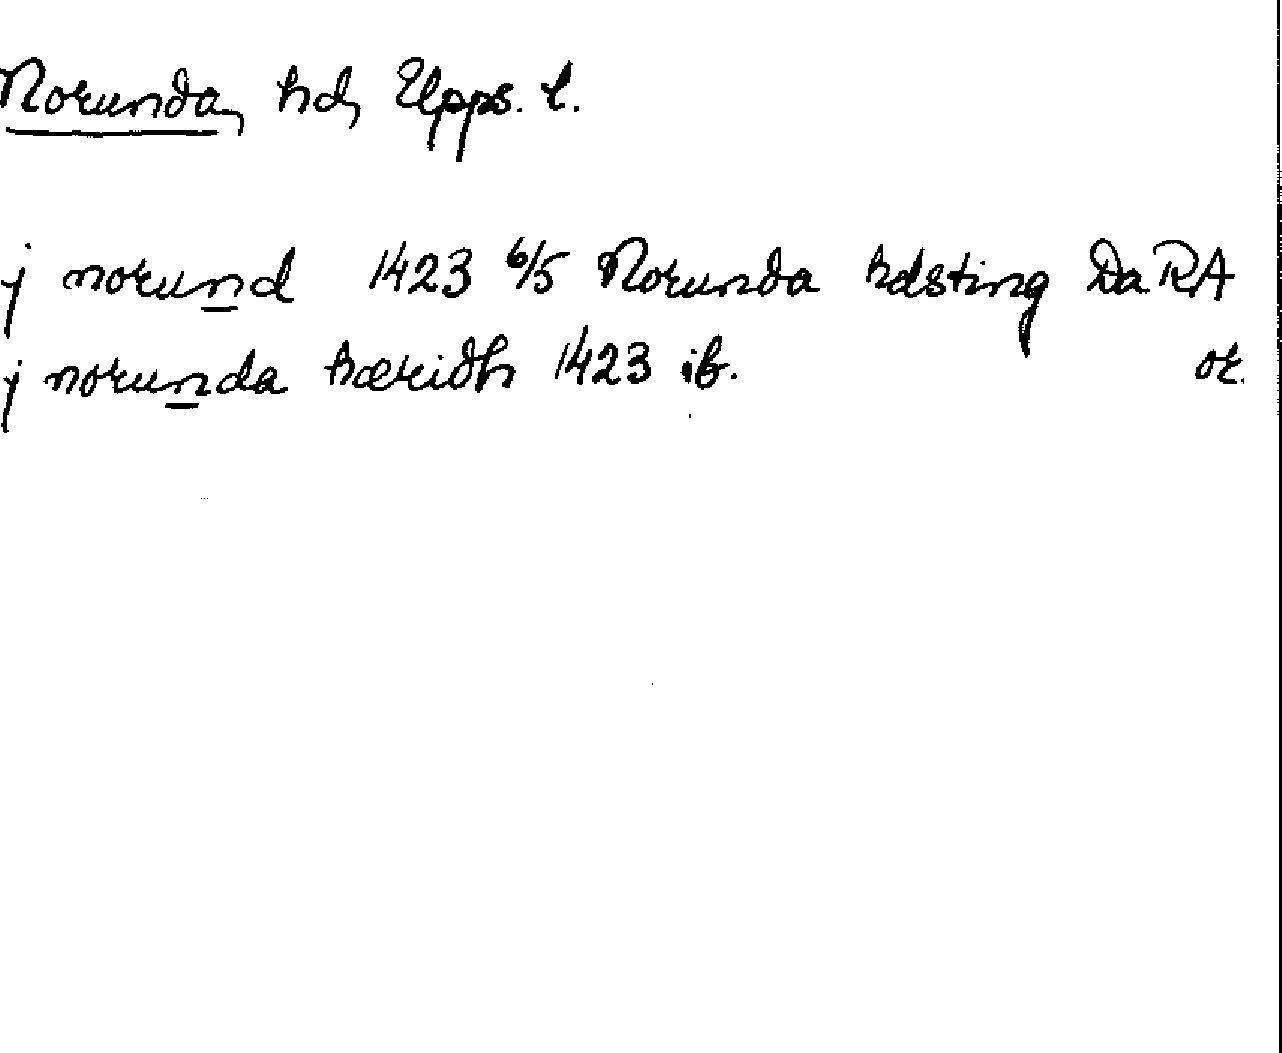 Norunda, hd, Upps. l.
j norund 1423 6/5 Norunda hdsting Da RA
j norunda hæridh 1423 ib. or.